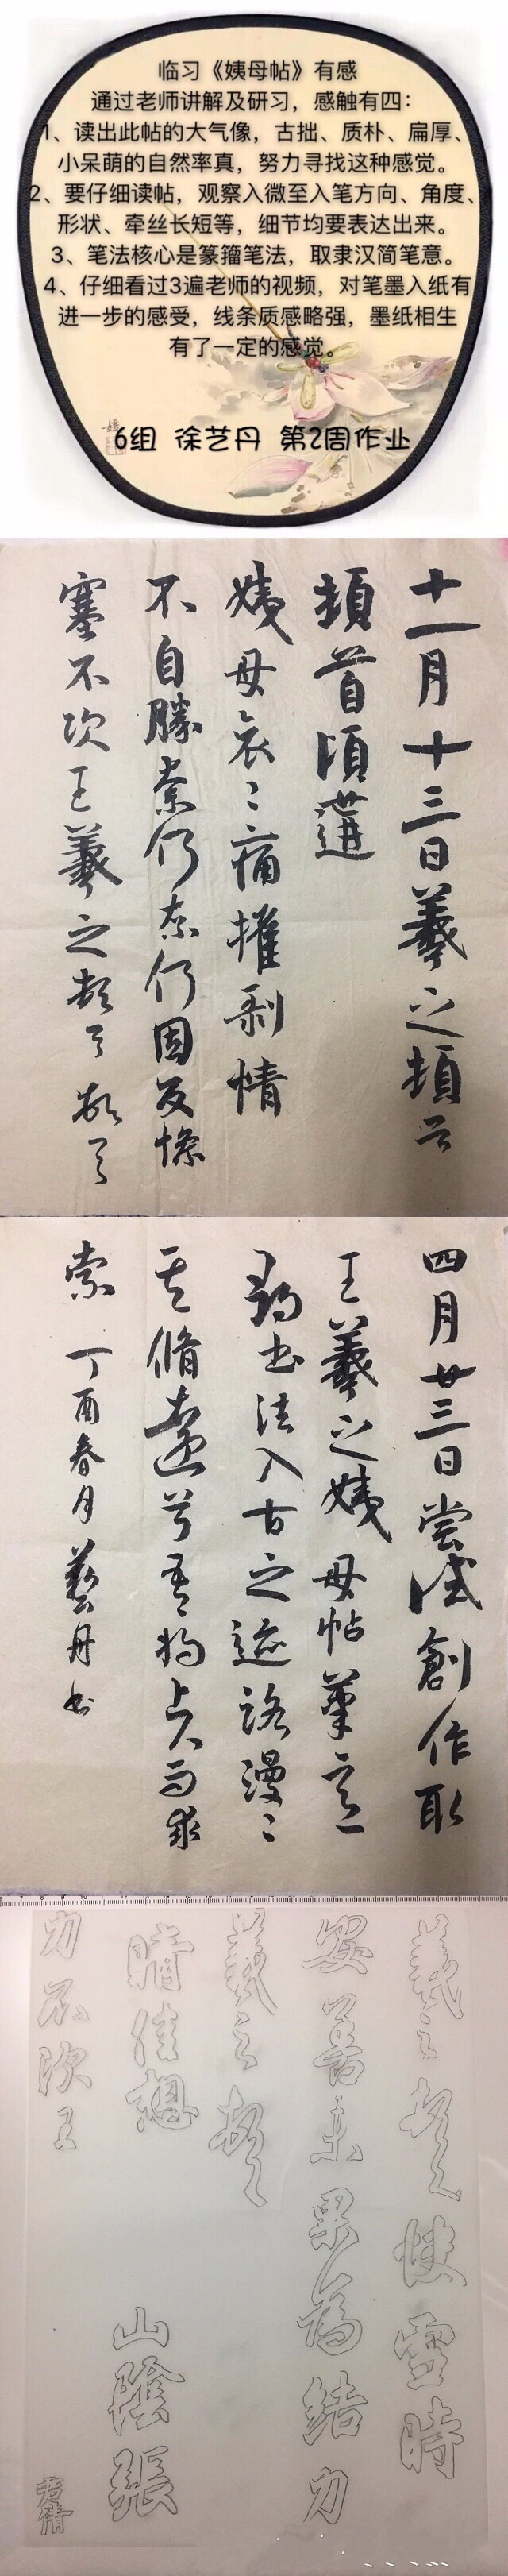 临习《姨母帖》有感
通过老师讲解及研习，感触有四：
1、读出此帖的大气像，古拙、质朴、扁厚、
小呆萌的自然率真，努力寻找这种感觉。
2、要仔细读帖，观察入微至入笔方向、角度、
形状、牵丝长短等，细节均要表达出来。
3、笔法核心是篆籀笔法，取隶汉简笔意。
4、仔细看过3遍老师的视频，对笔墨入纸有
进一步的感受，线条质感略强，墨纸相生
有了一定的感觉。
6组 徐艺丹 第2周作业
十一月十三日羲之頓首
頓首頃遘
姨母哀〻痛摧剥情
不自勝柰何柰何因反慘
塞不次王羲之頓首頓首
四月廿三日尝试創作取
王羲之姨母帖筆意
韵书法入古之途路漫〻
其脩遠兮吾将上下而求
索 丁酉春月藝丹书
羲之頓首快雪時
晴佳想
安善未果為結力
不次王
羲之頓首
山陰張